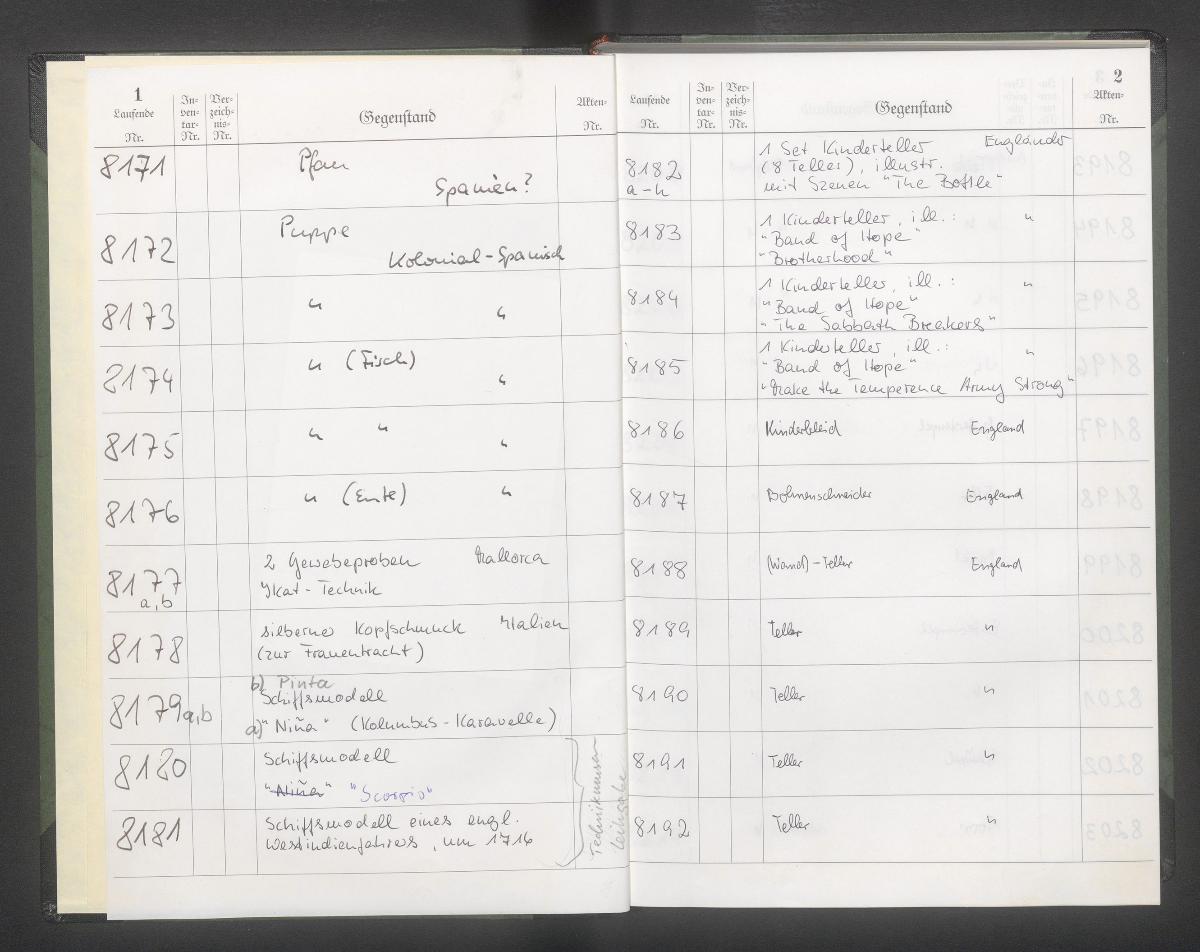 1
Laufende Nr. In=ven=tar=Nr. Ver=zeich=nis=Nr. Gegenstand Akten=Nr.
8171 Pfau
Spanien?
8172 Puppe
Kolonial-Spanisch
8173 " "
8174 " (Fisch) "
8175 " " "
8176 " (Ente) "
8177 a,b 2 Gewebeproben Mallorca
Ikat-Technik
8178 silberner Kopfschmuck Italien
(zur Frauentracht)
b) Pinta
8179 a,b Schiffsmodell
a) "Niña" (Kolumbus-Karavelle)
8180 Schiffsmodell
"Niña" "Scorpio"
8181 Schiffsmodell eines engl.
Westindienfahrers, um 1716
Technikmuseum
Leihgabe
2
Laufende Nr. In=ven=tar=Nr. Ver=zeich=nis=Nr. Gegenstand Akten=Nr.
8182 a-h 1 Set Kinderteller England
(8 Teller), illustr.
mit Szenen "The Bottle"
8183 1 Kinderteller, ill.: "
"Band of Hope"
"Brotherhood"
8184 1 Kinderteller, ill.: "
"Band of Hope"
"The Sabbath Breakers"
8185 1 Kinderteller, ill.: "
"Band of Hope"
"Make the Temperence Army Strong"
8186 Kinderkleid England
8187 Bohnenschneider England
8188 (Wand)-Teller England
8189 Teller "
8190 Teller "
8191 Teller "
8192 Teller "